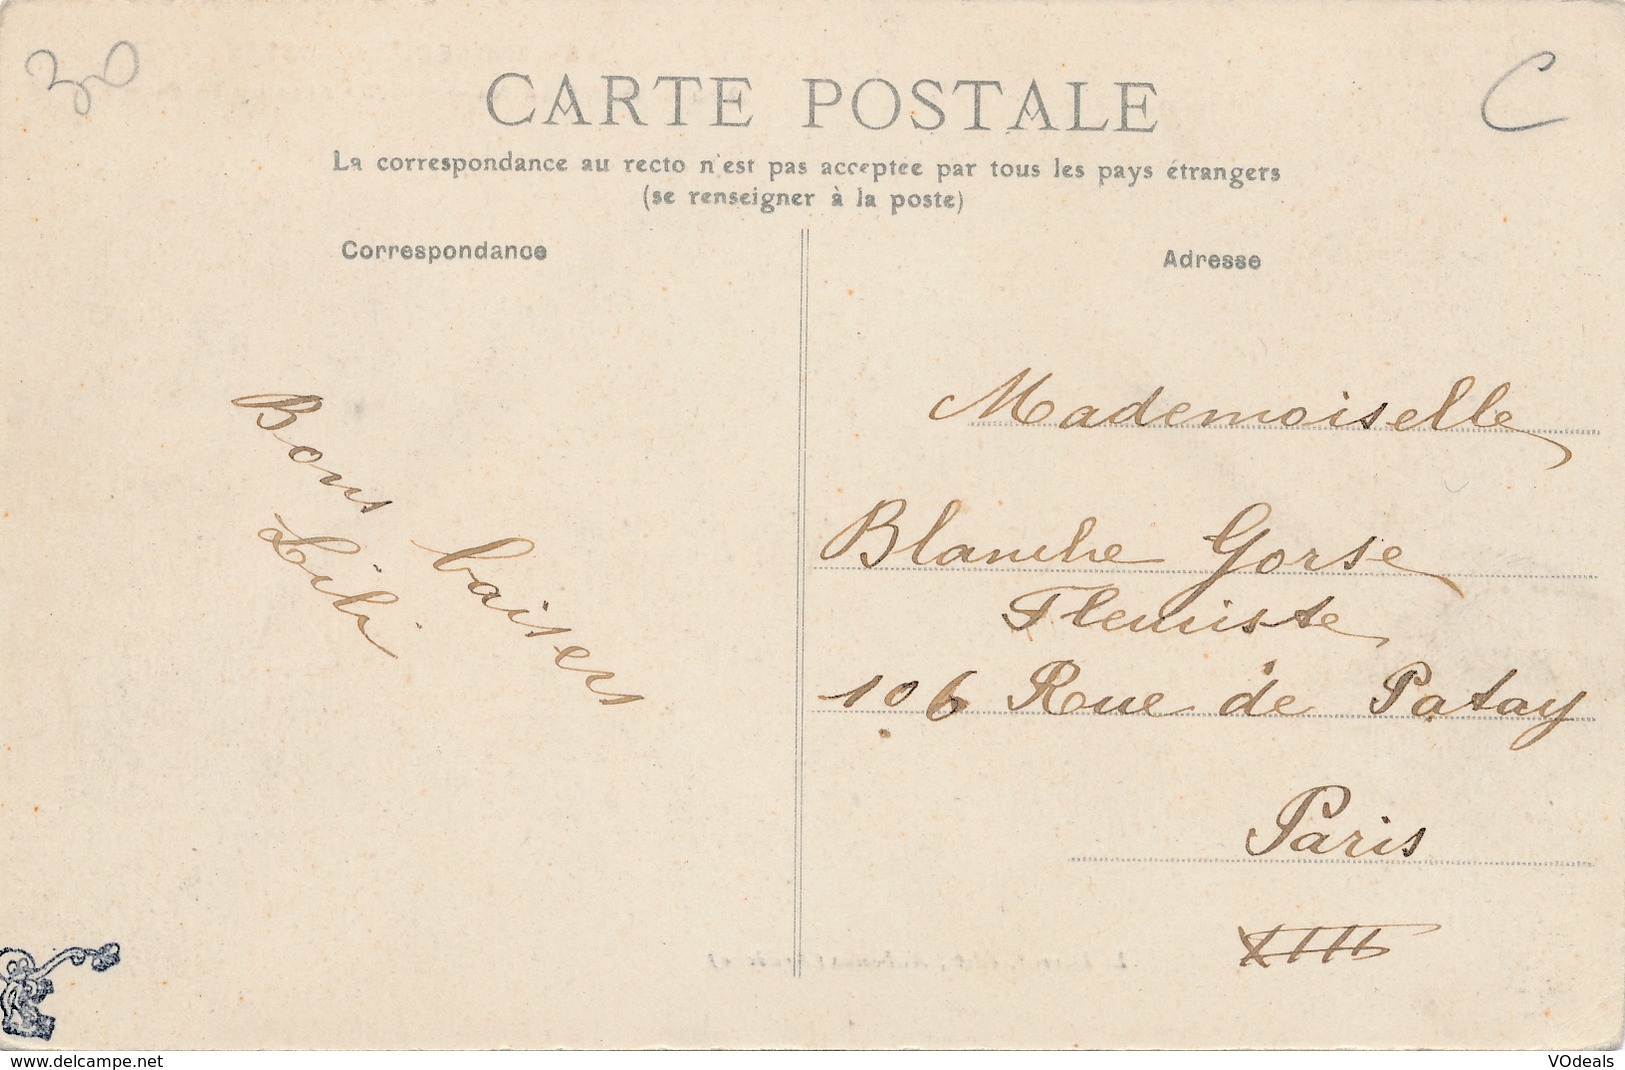 30
C
CARTE POSTALE
La correspondance au recto n'est pas acceptée par tous les pays étrangers
(se renseigner à la poste)
Correspondance
Adresse
Bons baisers
Lili
Mademoiselle
Blanche Gorse
Fleuriste
106 Rue de Patay
Paris
XIII
www.delcampe.net
VOdeals